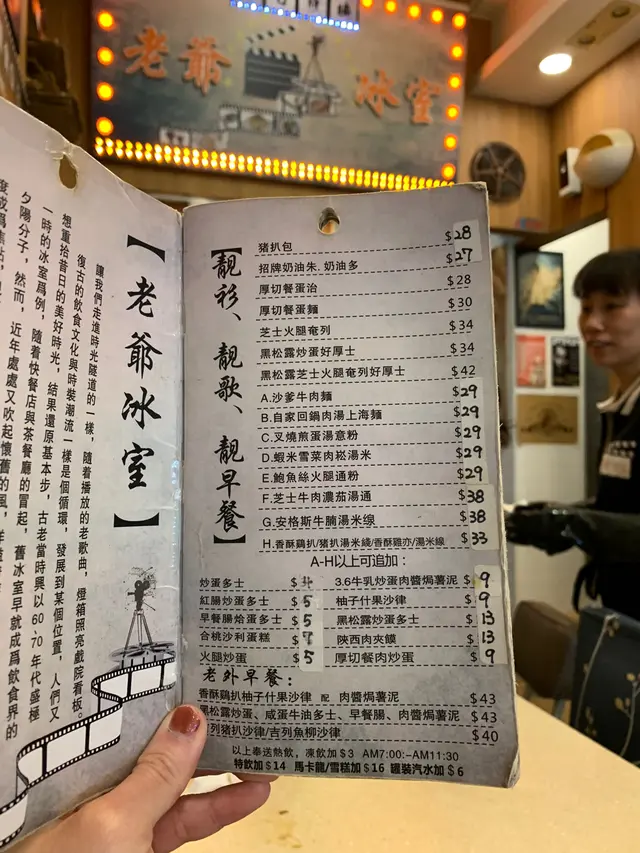 老爺 冰室
【老爺冰室】
讓我們走進時光隧道的一樣，隨着播放的老歌曲，燈箱照亮戲院看板。
復古的飲食文化與時裝潮流一樣是個循環，發展到某個位置，人們又
想重拾昔日的美好時光，結果還原基本步，古老當時興以60、70年代盛極
一時的冰室爲例，隨着快餐店與茶餐廳的冒起，舊冰室早就成爲飲食界的
夕陽分子，然而，近年處處又吹起懷舊的風，
【靚衫、靚歌、靚早餐】
豬扒包 $28
招牌奶油朱.奶油多 $27
厚切餐蛋治 $28
厚切餐蛋麵 $30
芝士火腿奄列 $34
黑松露炒蛋好厚士 $34
黑松露芝士火腿奄列好厚士 $42
A.沙爹牛肉麵 $29
B.自家回鍋肉湯上海麵 $29
C.叉燒煎蛋湯意粉 $29
D.蝦米雪菜肉崧湯米 $29
E.鮑魚絲火腿通粉 $29
F.芝士牛肉濃茄湯通 $38
G.安格斯牛腩湯米線 $38
H.香酥鷄扒/豬扒湯米綫/香酥雞亦/湯米線 $33
A-H以上可追加：
炒蛋多士 $
3.6牛乳炒蛋肉醬焗薯泥 $9
紅腸炒蛋多士 $5
柚子什果沙律 $9
早餐腸焓蛋多士 $5
黑松露炒蛋多士 $13
合桃沙利蛋糕 $7
陝西肉夾饃 $13
火腿炒蛋 $5
厚切餐肉炒蛋 $9
老外早餐：
香酥鷄扒柚子什果沙律 配 肉醬焗薯泥 $43
黑松露炒蛋、咸蛋牛油多士、早餐腸、肉醬焗薯泥 $43
列豬扒沙律/吉列魚柳沙律 $40
以上奉送熱飲，凍飲加$3 AM7:00-AM11:30
特飲加$14 馬卡龍/雪糕加$16 罐裝汽水加$6